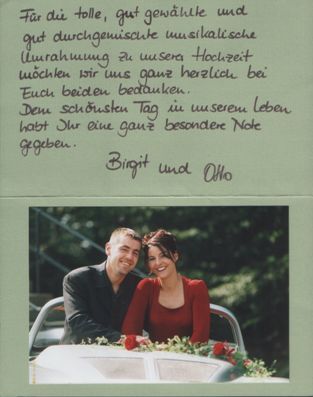 Für die tolle, gut gewählte und
gut durchgemischte musikalische
Umrahmung zu unserer Hochzeit
möchten wir uns ganz herzlich bei
Euch beiden bedanken.
Dem schönsten Tag in unserem Leben
habt Ihr eine ganz besondere Note
gegeben.
Birgit und Otto